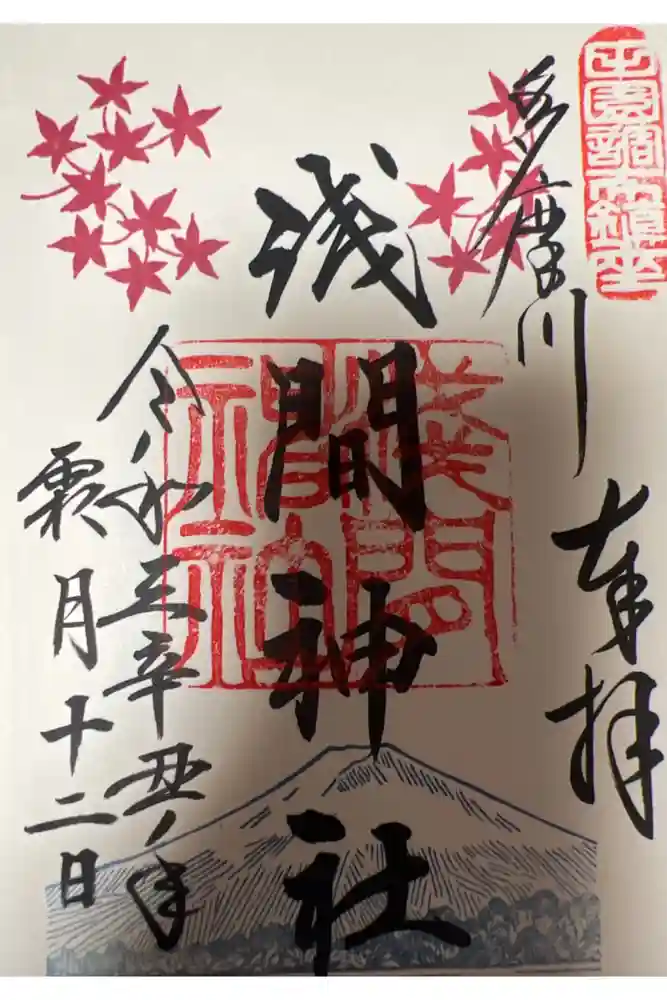 田園調布鎮座
多摩川
奉拝
浅間神社
淺間神社
令和三辛丑年
霜月十二日